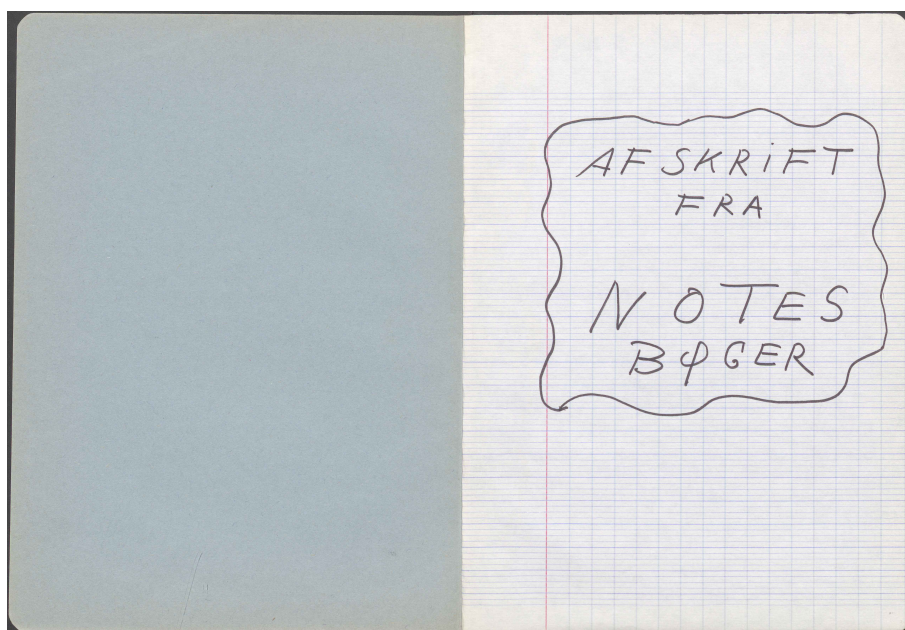 AFSKRiFT
FRA
NOTES
BØGER